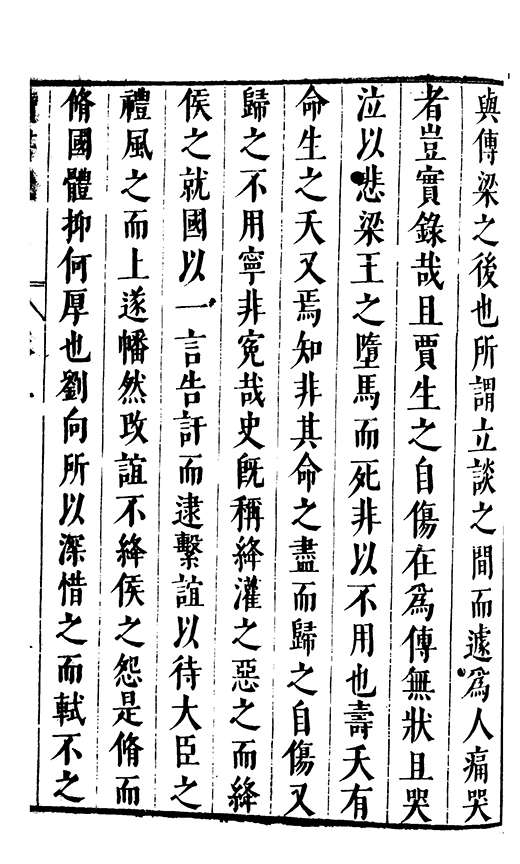 與傳梁之後也所謂立談之間而遽爲人痛哭
者豈實錄哉且賈生之自傷在爲傅無狀且哭
泣以悲梁王之墮馬而死非以不用也壽夭有
命生之夭又焉知非其命之盡而歸之自傷又
歸之不用寧非寃哉史旣稱絳灌之惡之而絳
侯之就國以一言告訐而逮繫誼以待大臣之
禮風之而上遂幡然改誼不絳侯之怨是脩而
脩國體抑何厚也劉向所以深惜之而軾不之